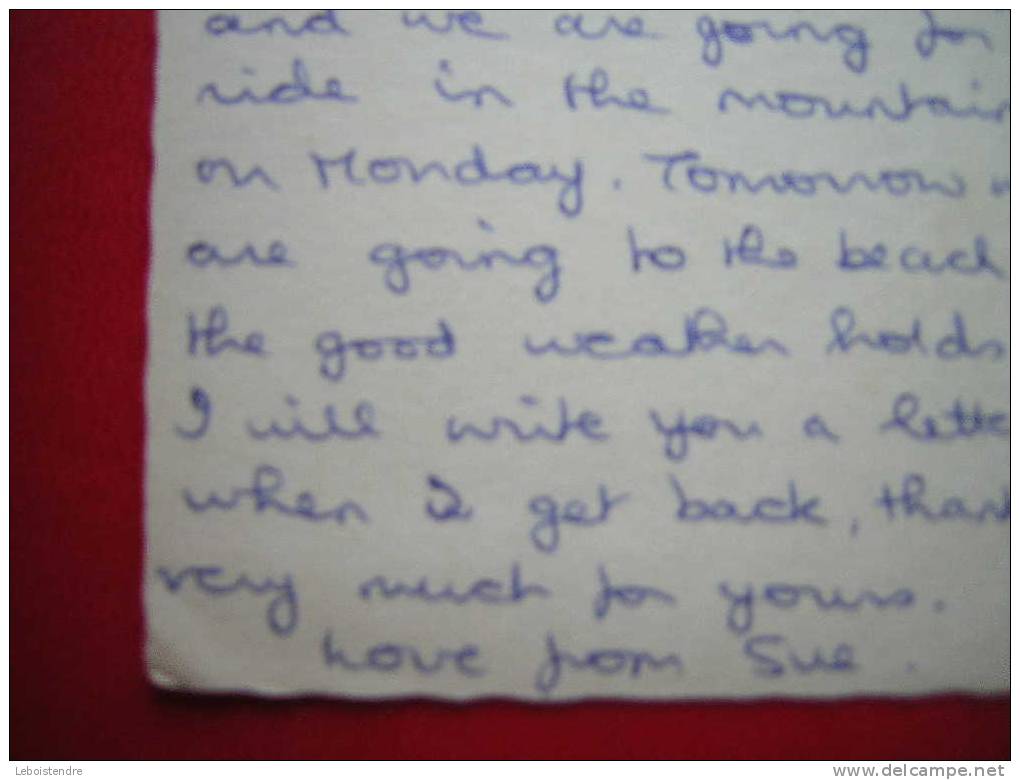 and we are going for
ride in the mountain
on Monday. Tomorrow
are going to the beach
the good weather holds
I will write you a lette
when I get back, thank
very much for yours.
Love from Sue.
Leboistendre
www.delcampe.net